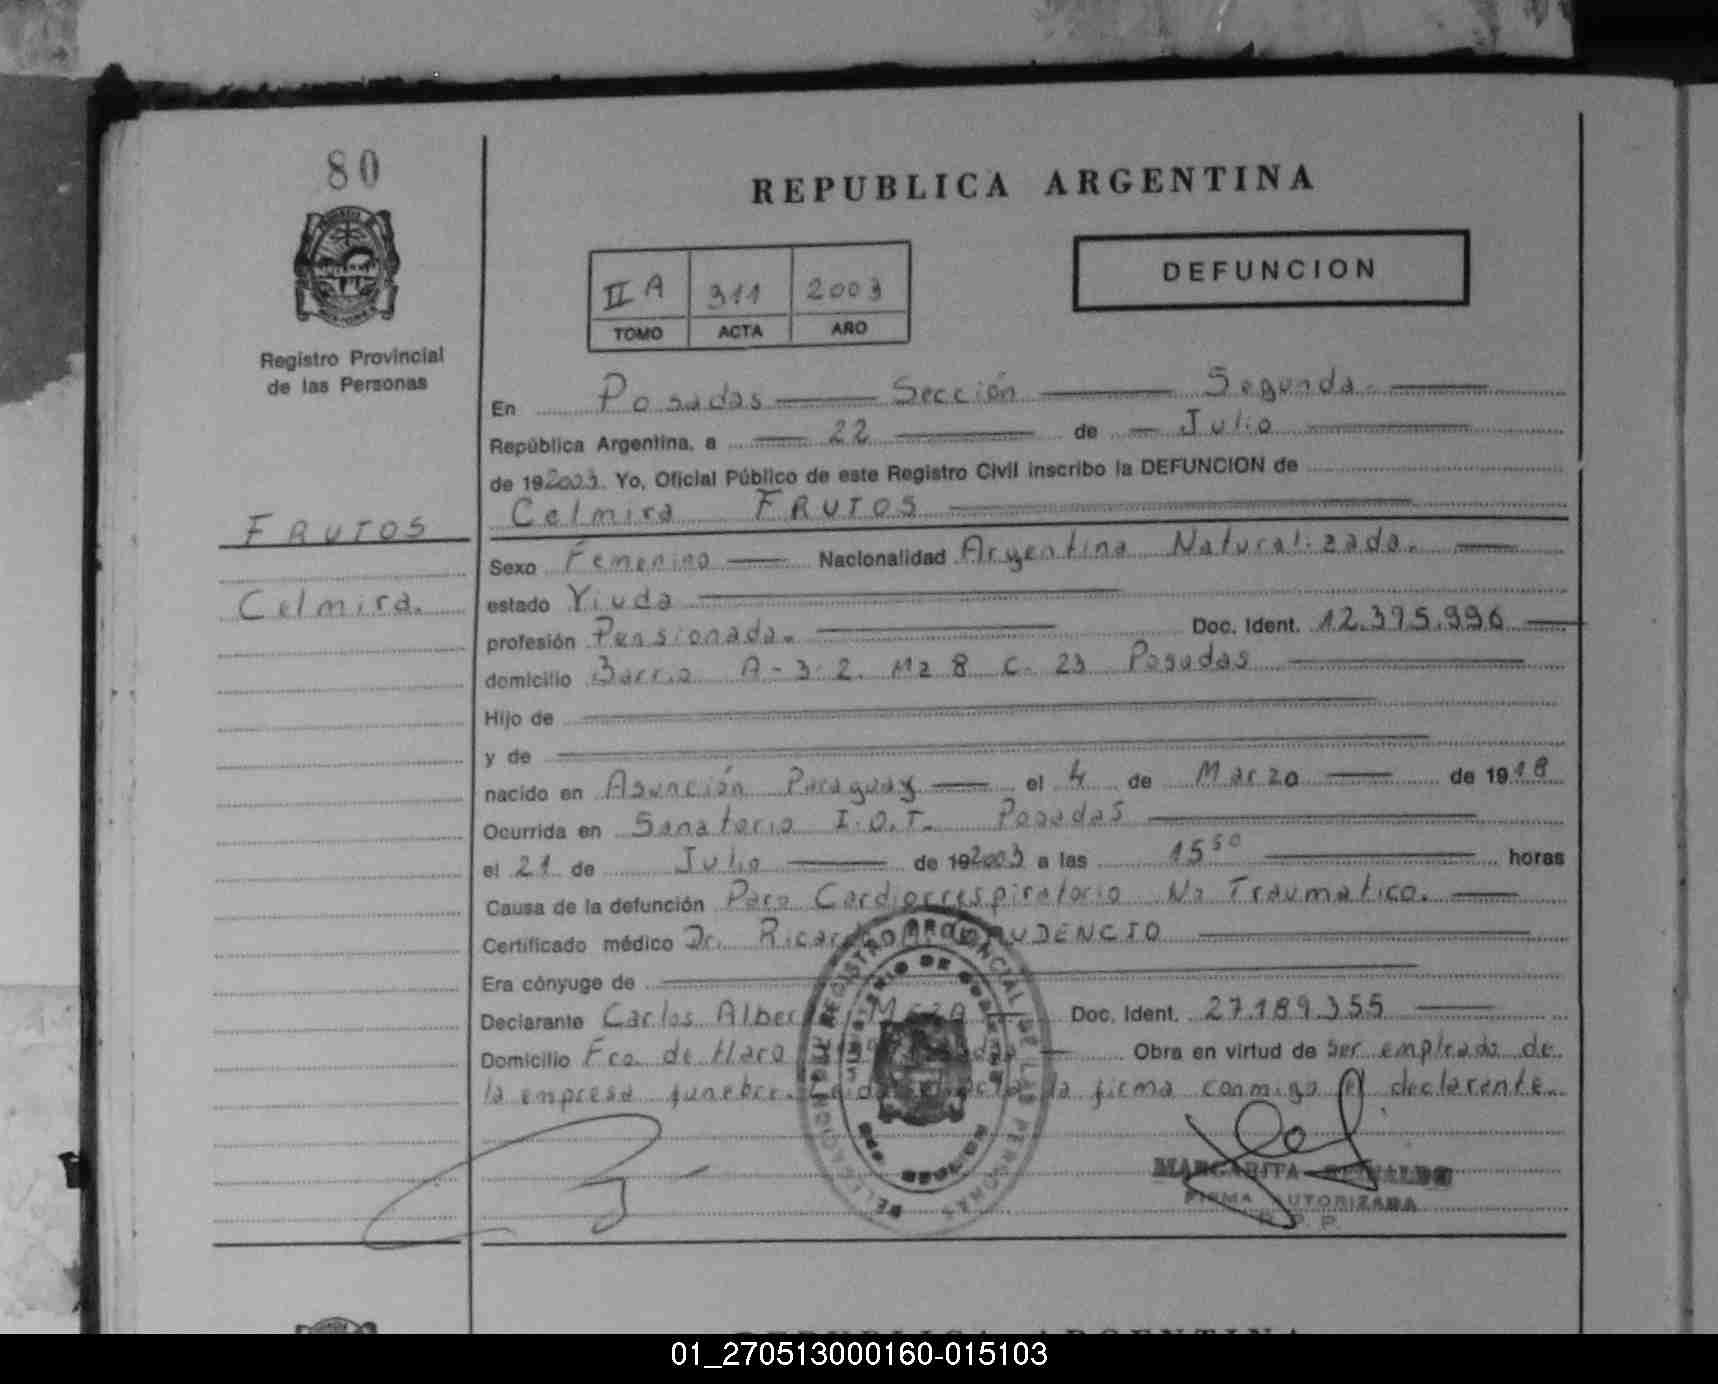 80
REPUBLICA ARGENTINA
DEFUNCION
II A 311 2003
TOMO ACTA AÑO
Registro Provincial
de las Personas
En Posadas Sección Segunda.
República Argentina, a 22 de Julio
de 192003. Yo, Oficial Público de este Registro Civil inscribo la DEFUNCION de
Celmira FRUTOS
FRUTOS
Celmira.
Sexo Femenino Nacionalidad Argentina Naturalizada.
estado Viuda
profesión Pensionada. Doc. Ident. 12.395.996
domicilio Barrio A-3-2. Mz 8 C. 23 Posadas
Hijo de
y de
nacido en Asunción Paraguay el 4 de Marzo de 1918
Ocurrida en Sanatorio I.O.T. Posadas
el 21 de Julio de 192003 a las 15 50 horas
Causa de la defunción Paro Cardiorrespiratorio No Traumatico.
Certificado médico Dr. Ricardo
Era cónyuge de
Declarante Carlos Alber MEZA Doc. Ident. 27.189.355
Domicilio Fco. de Haro Obra en virtud de ser empleado de
la empresa funebre. Leida la firma conmigo el declarante.
REGISTRO PROVINCIAL DE LAS PERSONAS
MINISTERIO DE GOBIERNO
MARGARITA
FIRMA AUTORIZADA
R. P. P.
REPUBLICA ARGENTINA
01_270513000160-015103